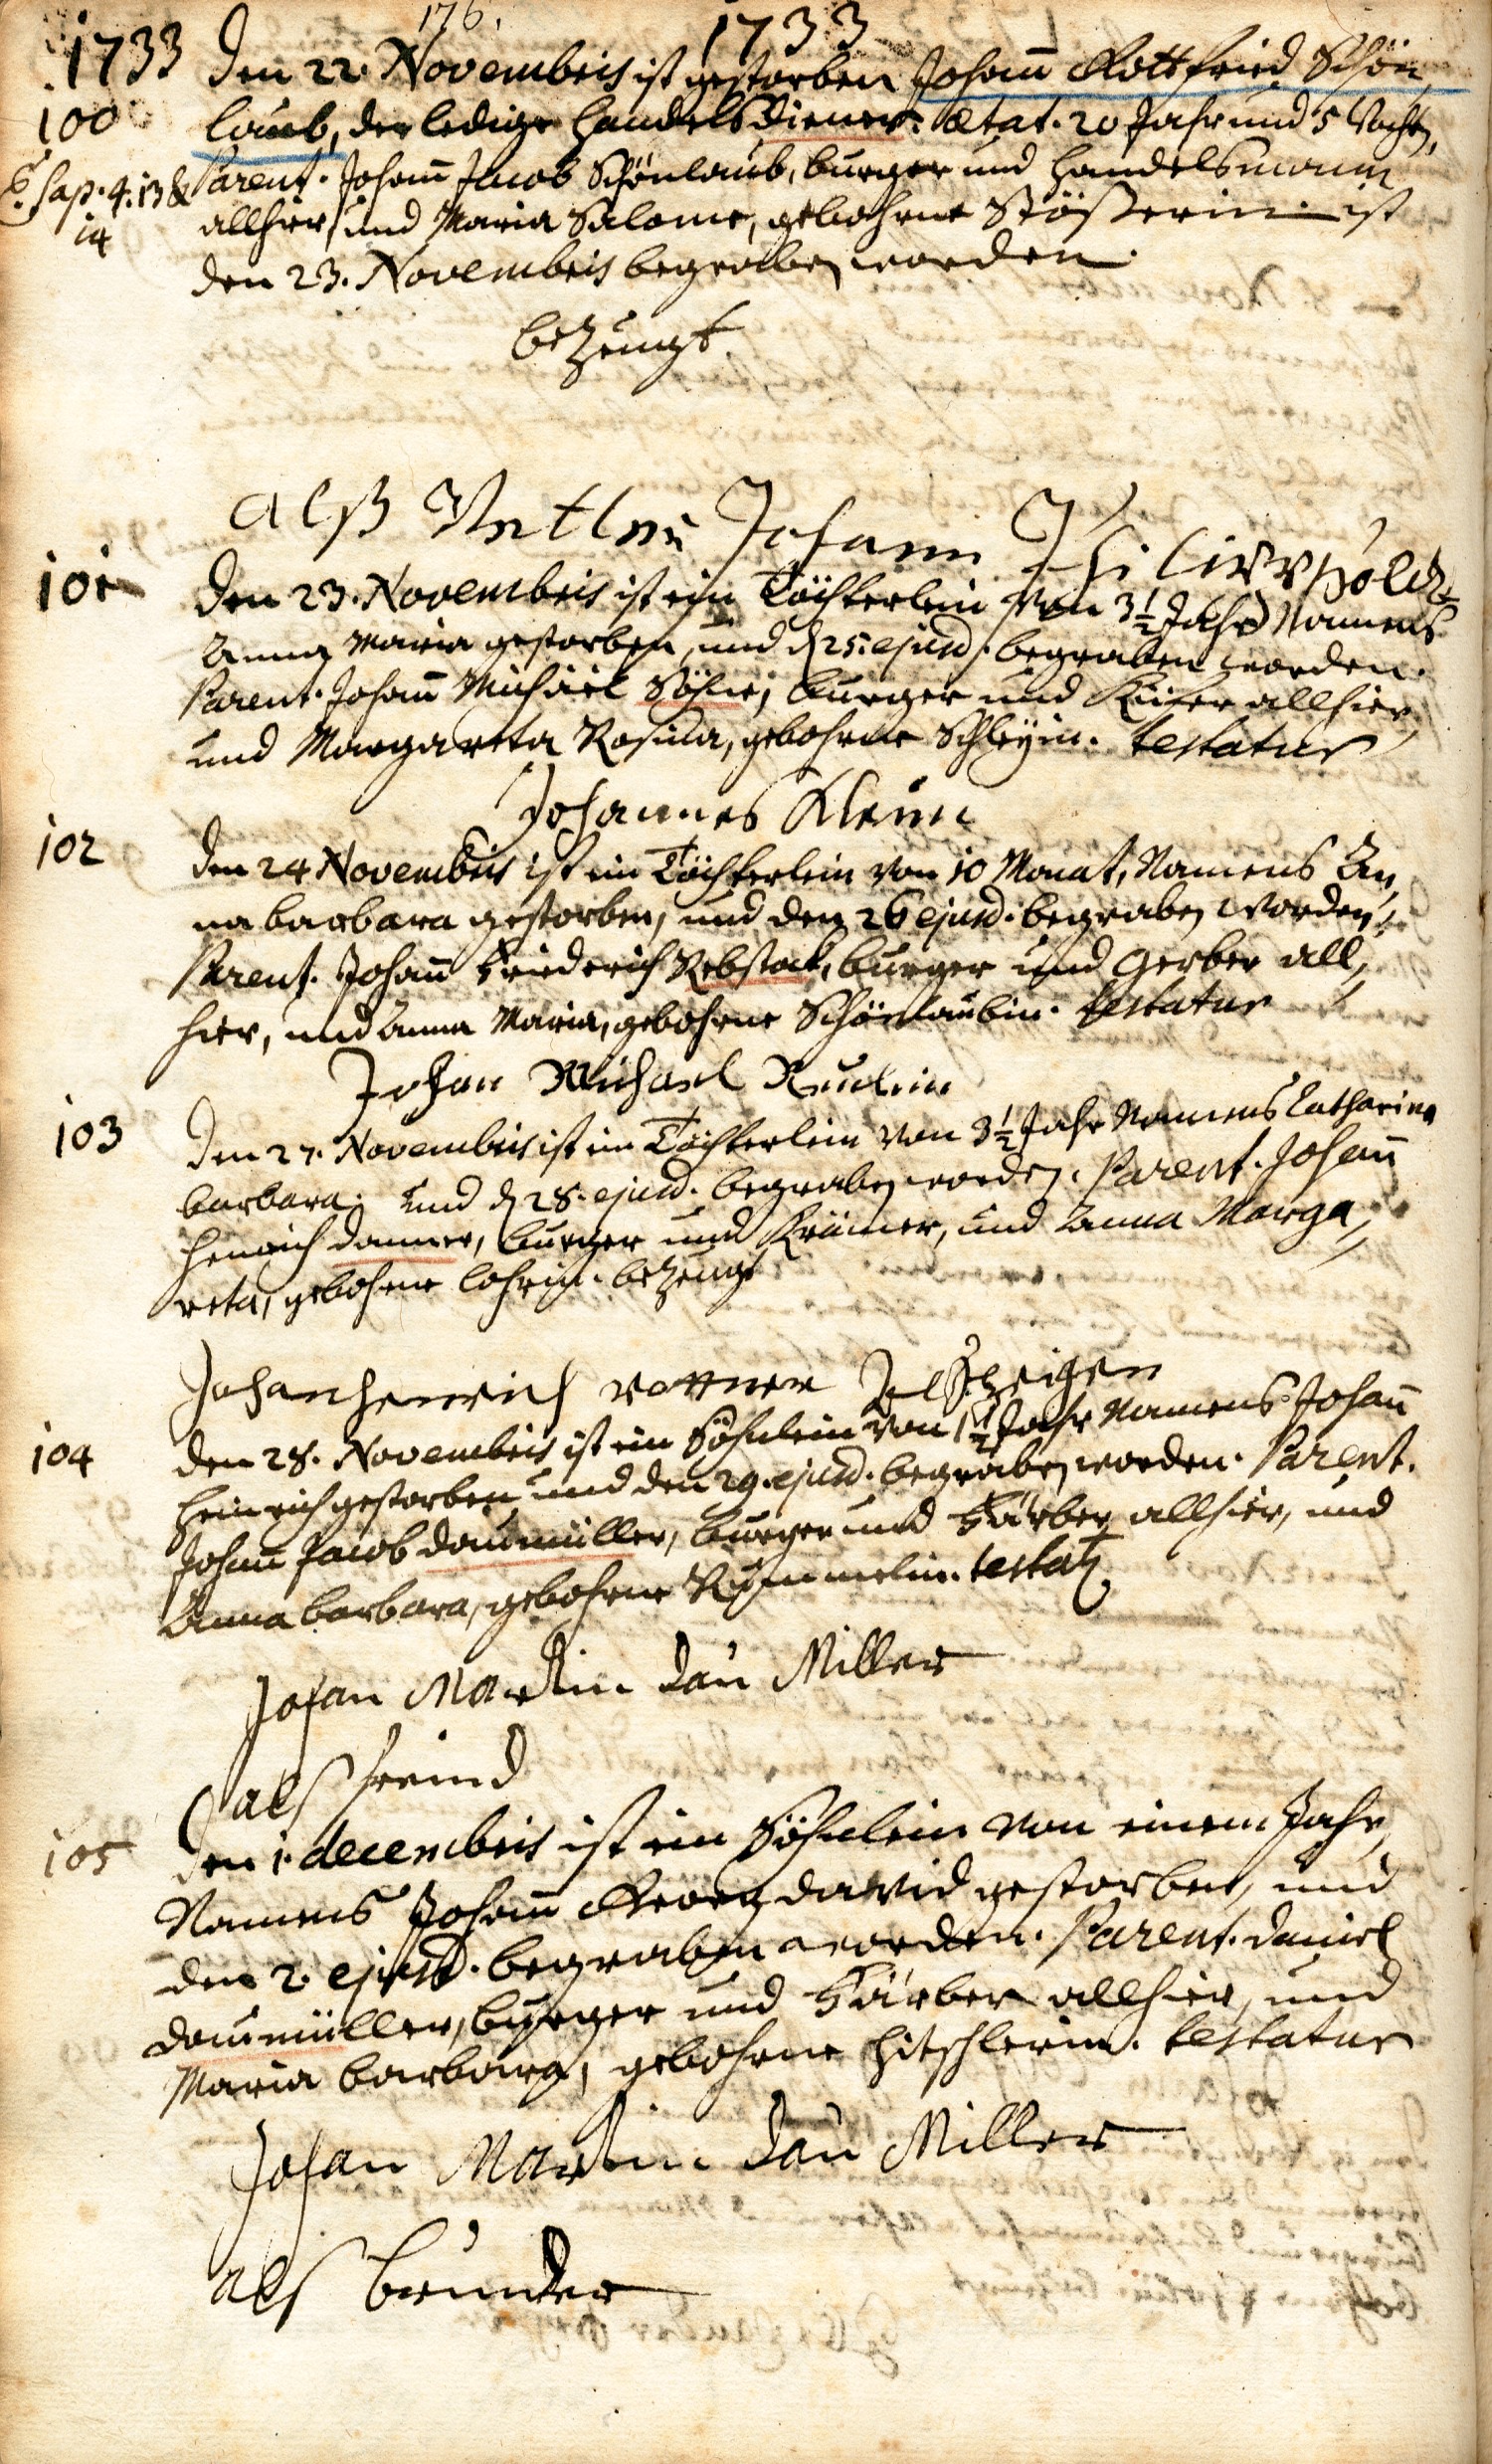 176.
1733
1733 Den 22. Novembris ist gestorben Johann Gottfried Schön,
100 laub, der ledige Handelsdiener. Ætat. 20 Jahr und 5 Wochen,
Sap. 4. 13 & Parent. Johann Jacob Schönlaub, burger und Handelsmann
14 allhier, und Maria Salome, gebohrne Stößerin. ist
den 23. Novembris begraben worden.
bezeugt.
alß Vetter Johann Philipp
101 Den 23. Novembris ist ein Töchterlein von 3½ Jahr Namens
Anna Maria gestorben, und d 25. ejusd. begraben worden.
Parent. Johann Michael Söhne, burger und Küfer allhier,
und Margareta Rosina, gebohrne Schleyin. testatur
Johannes Klein
102 Den 24 Novembris ist ein Töchterlein von 10 Monat, Namens An,
na barbara gestorben, und den 26 ejusd. begraben worden,
Parent. Johann Friederich Rebstock, burger und Gerber all,
hier, und Anna Maria, gebohrne Schönlaubin. testatur
Johan Michael
103 Den 27. Novembris ist ein Töchterlein von 3½ Jahr Namens Catharina
barbara. und d 28. ejusd. begraben worden. Parent. Johann
Henrich Danner, burger und Krämer, und Anna Marga,
reta, gebohrne Lohrin. bezeugt
Johan Henrich
104 Den 28. Novembris ist ein Söhnlein von 1½ Jahr Namens Johann
Heinrich gestorben und den 29. ejusd. begraben worden. Parent.
Johann Jacob Daumüller, burger und Färber allhier, und
Anna barbara, gebohrne Rümmelin. testat
Johan Martin Dau Miller
als freind
105 Den 1. decembris ist ein Söhnlein von einem Jahr,
Namens Johann Georg David gestorben, und
den 2. ejusd. begraben worden. Parent. Daniel
Daumüller, burger und Färber allhier, und
Maria barbara, gebohrne Hitschlerin. testatur
Johan Martin Dau Miller
als bruder